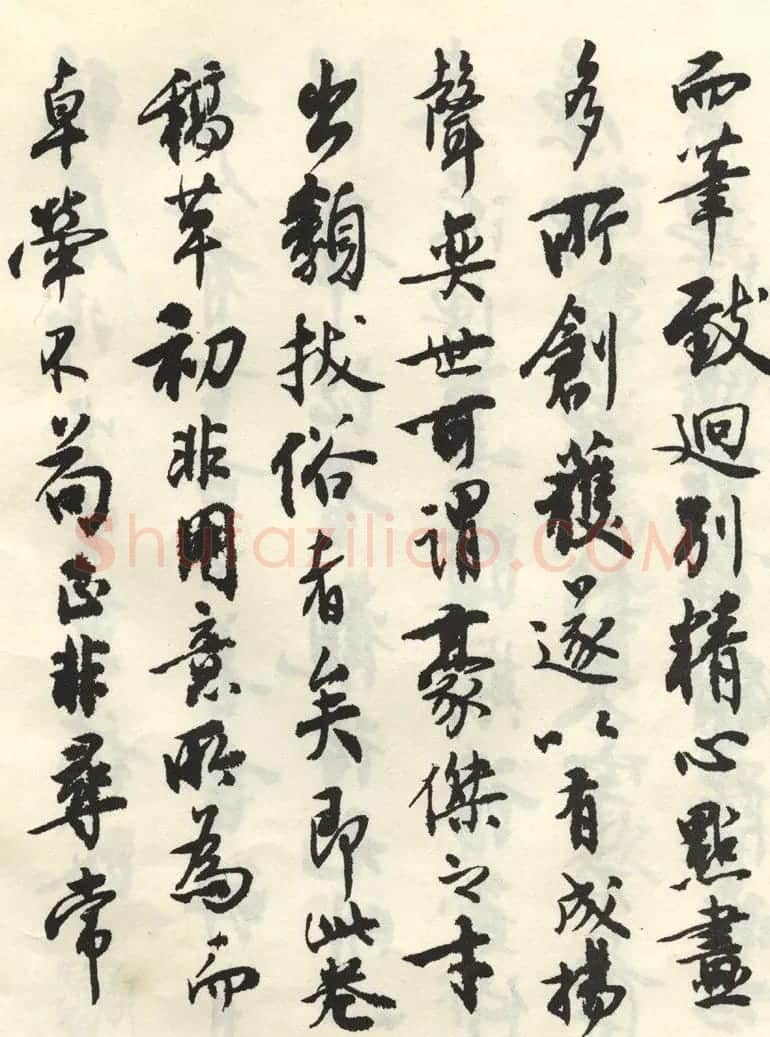 而筆致迥别精心點畫
多所創獲遂以有成揚
聲奕世可謂豪傑之才
出類拔俗者矣即此卷
稿草初非用意所為而
卓犖不苟正非尋常
Shufaziliao.COM